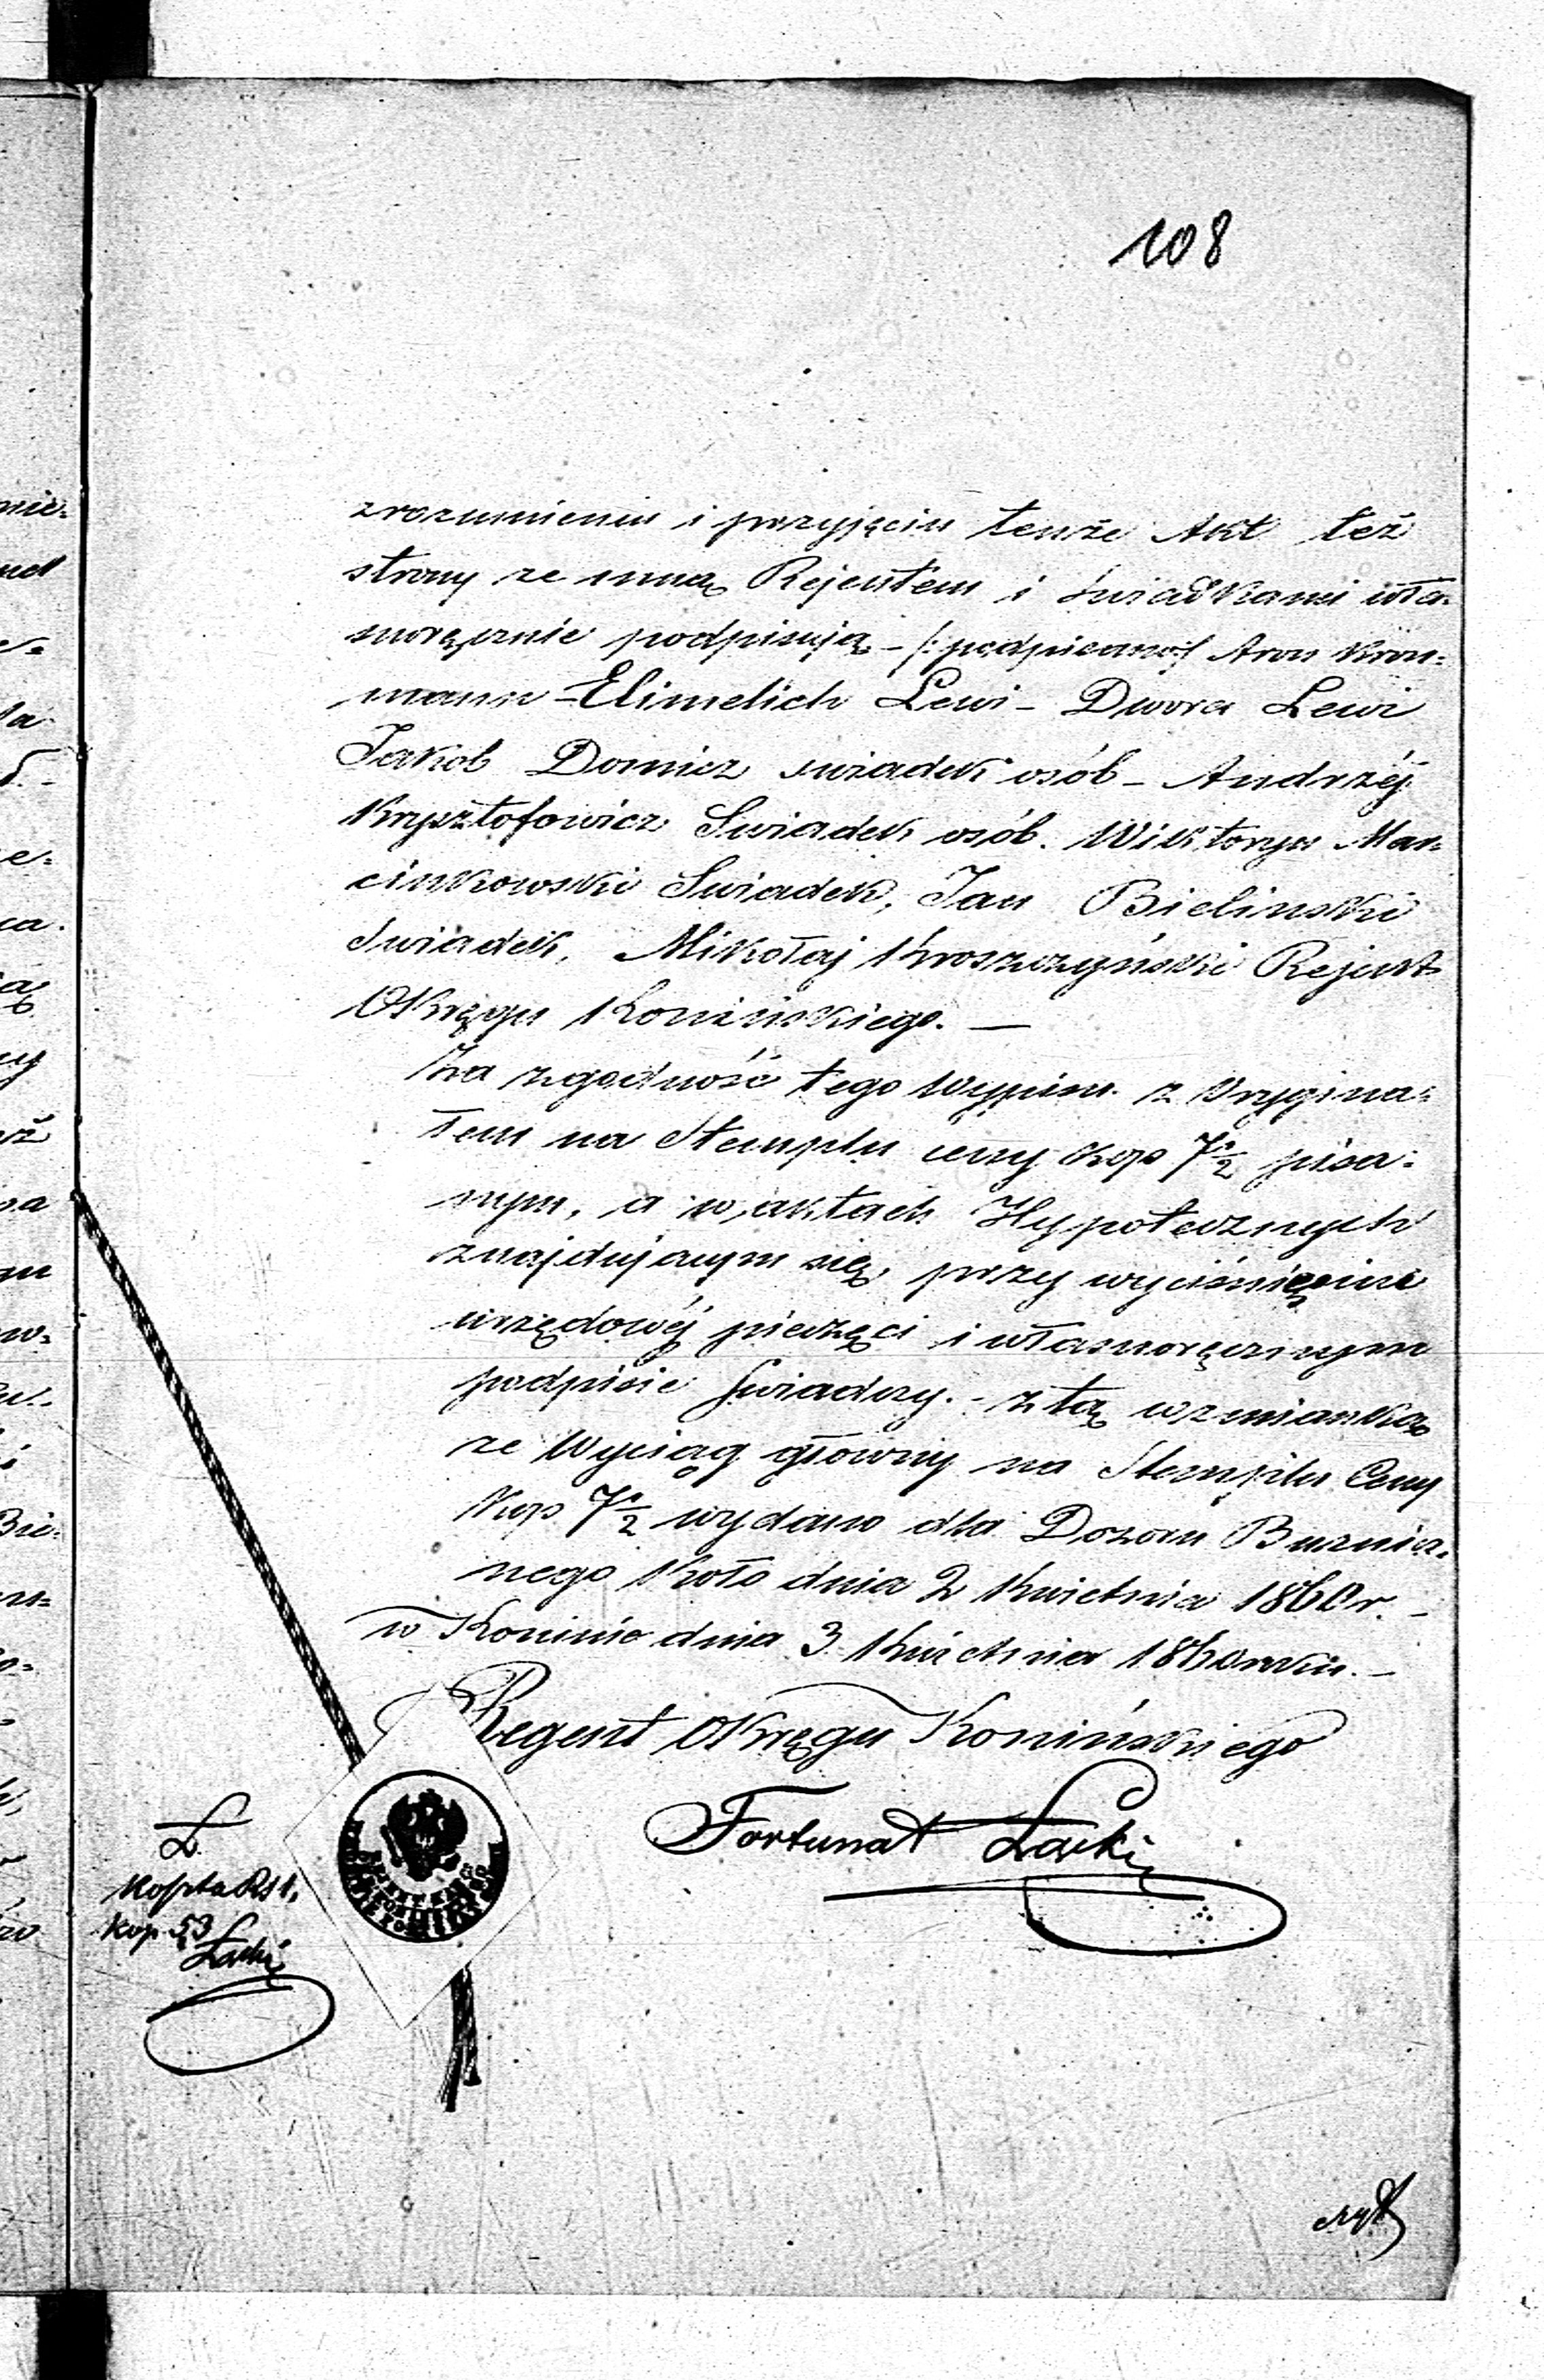 108
zrozumieniu i przyjęciu tenże Akt też
strony ze mną Rejentem i świadkami wła-
snoręcznie podpisują - /: podpisano :/ Aron Kron=
mann - Elimelich Lewi - Dwora Lewi
Jakob Domicz swiadek osób - Andrzéj
Krysztofowicz Swiadek osób. Wiktoryn Mar=
cinkowski Swiadek, Jan Bielinski
Swiadek, Mikołaj Kroszczyński Rejent
Okręgu Konińskiego. —
Za zgodność tego Wypisu z Orygina=
łem na Stemplu ceny kop 7½ pisa=
nym, a w aktach Hypotecznych
znajdującym się, przy wyciśnięciu
urzędowéj pieczęci i własnoręcznym
podpisie świadczy. - z tą wzmianką
ze Wyciąg główny na Stemplu Ceny
Kop 7½ wydano dla Dozoru Bużnicz=
nego Koło dnia 2 Kwietnia 1860 r. -
w Koninie dnia 3 Kwietnia 1860 roku. -
Regent Okręgu Konińskiego
Fortunat Łacki
Kop 53
Łacki